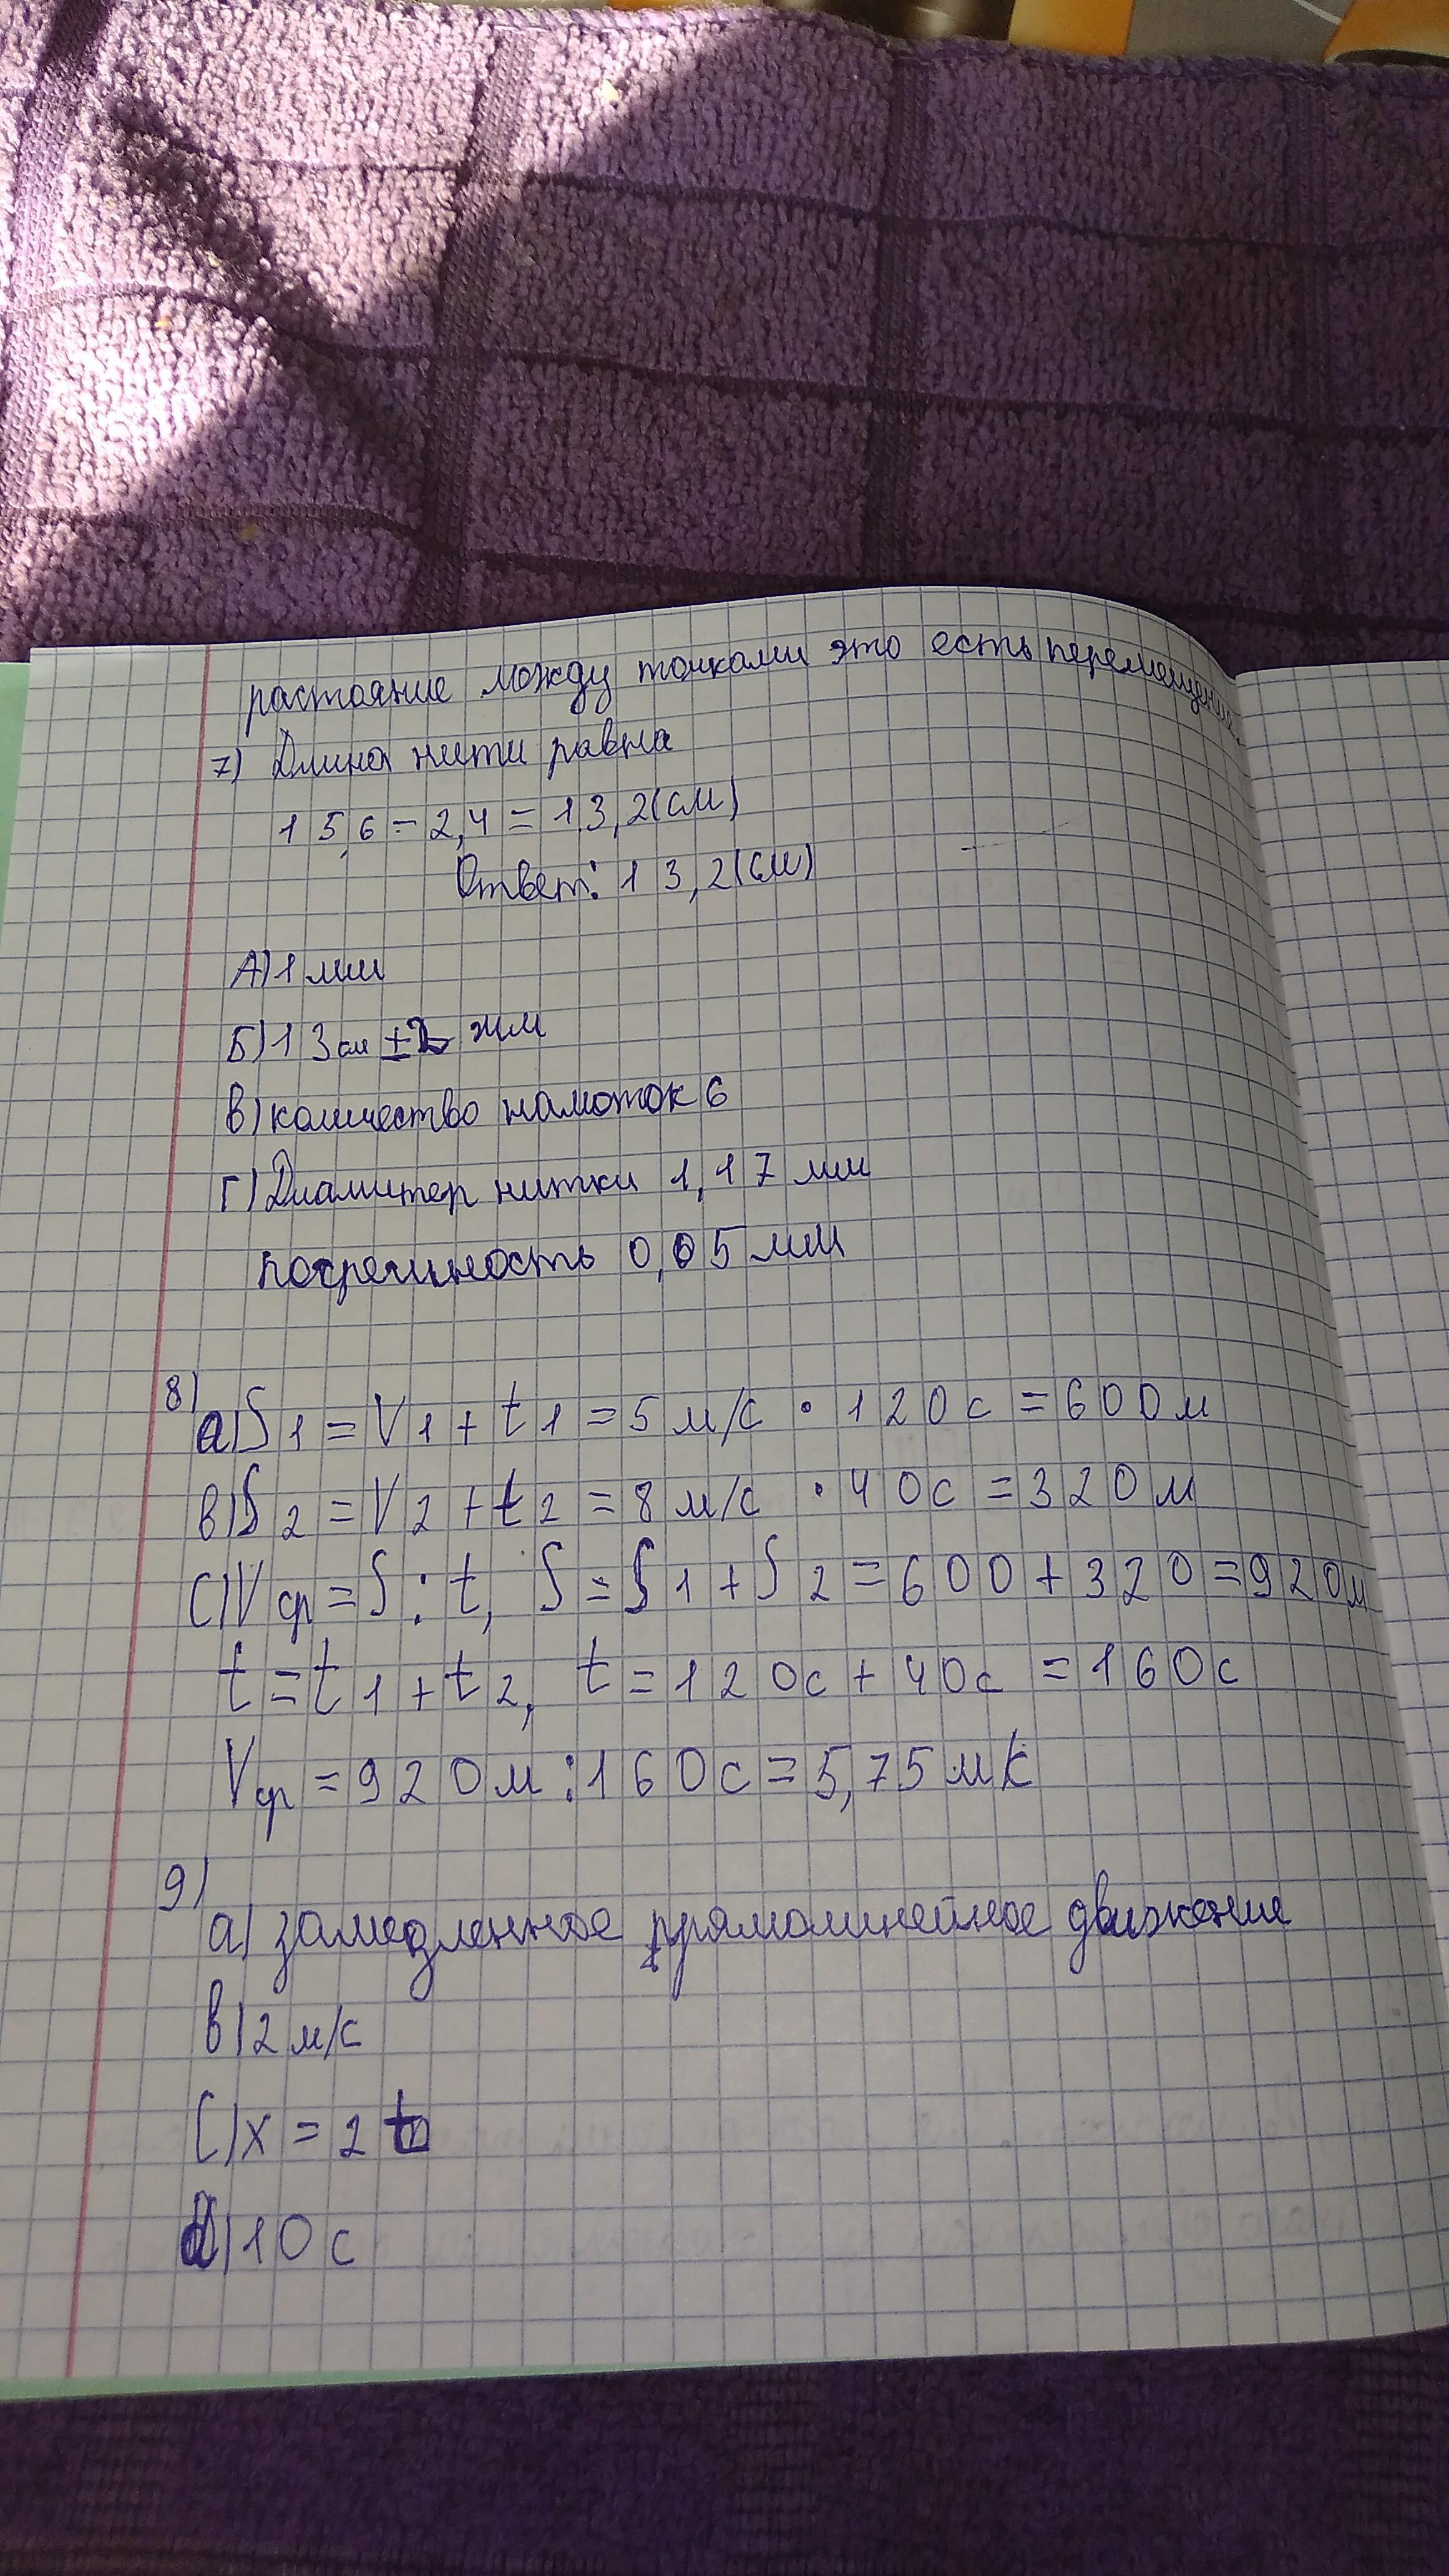 растояние между точками это есть перемещение.
7) Длина нити равна
15,6 - 2,4 = 13,2 (см)
Ответ: 13,2 (см)
А) 1 мм
Б) 13 см ± мм
В) количество намоток 6
Г) Диаметер нитки 1,17 мм
погрешность 0,05 мм
8)
a) S1 = V1 + t1 = 5 м/с • 120 с = 600 м
в) S2 = V2 + t2 = 8 м/с • 40 с = 320 м
c) Vср = S : t, S = S1 + S2 = 600 + 320 = 920 м
t = t1 + t2, t = 120 с + 40 с = 160 с
Vср = 920 м : 160 с = 5,75 м/с
9)
a) замедленное прямолинейное движение
в) 2 м/с
C) x = 2 t
d) 10 с